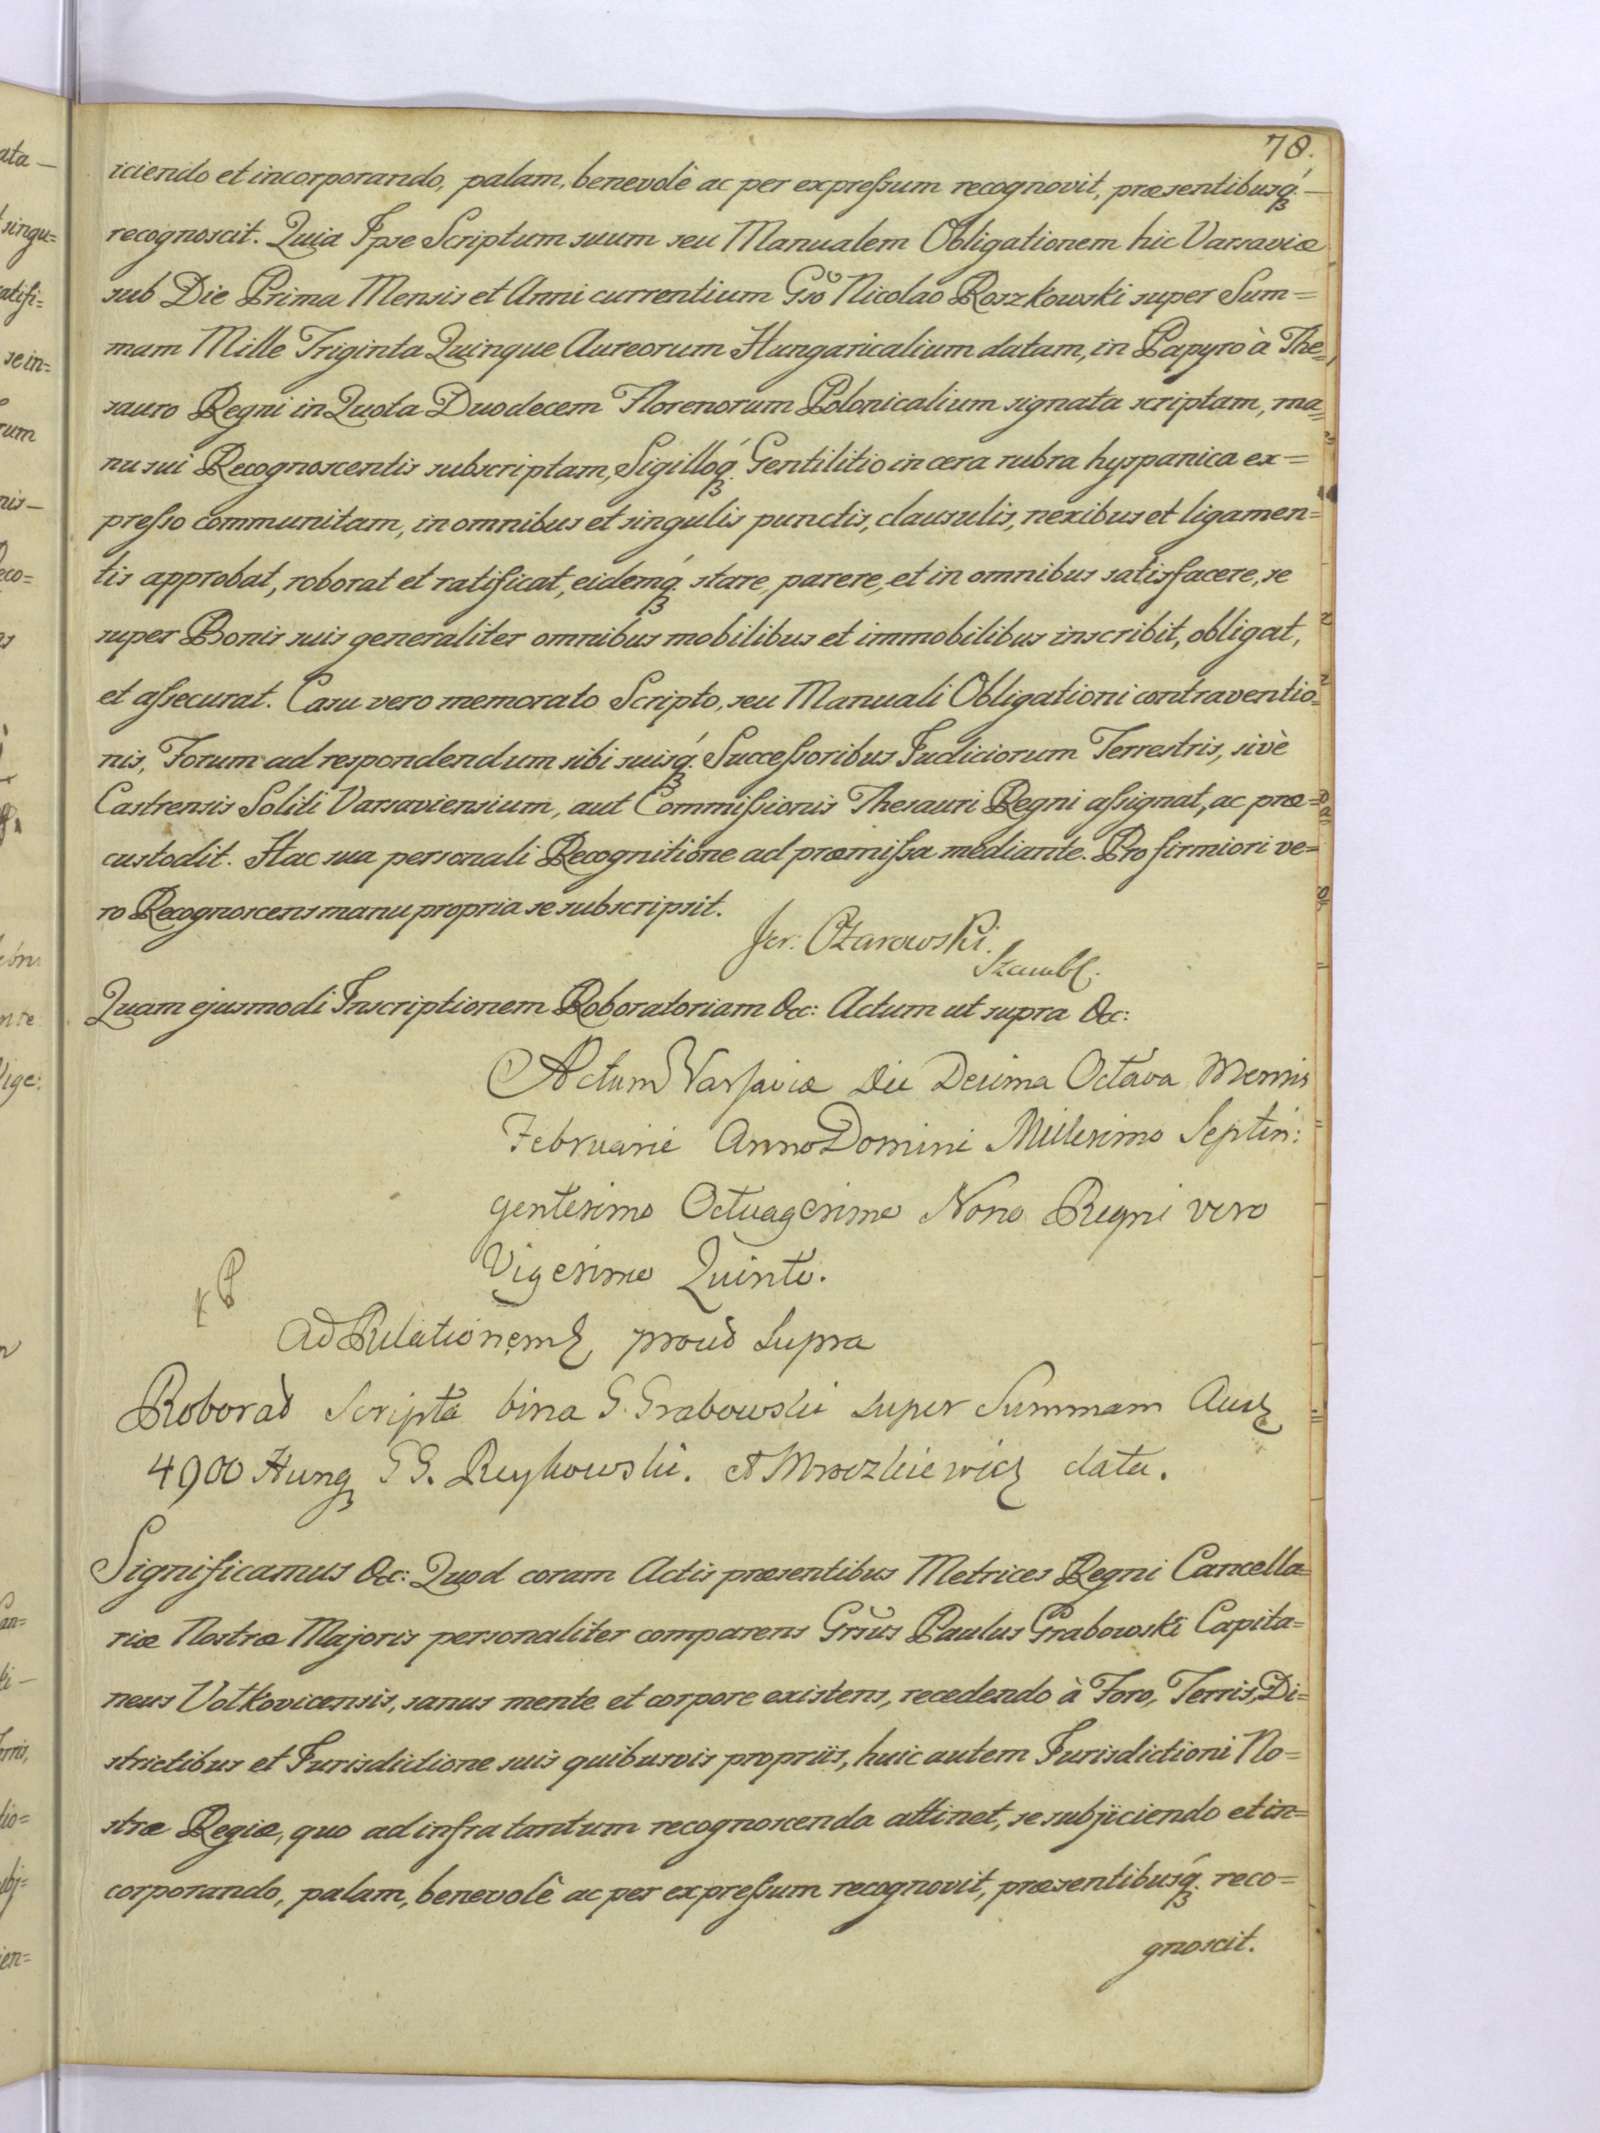 78.
iciendo et incorporando, palam, benevolè ac per expreſsum recognovit, præsentibusq́ꝫ. —
recognoscit. Quia Ipse Scriptum suum seu Manualem Obligationem hic Varsaviæ
sub Die Prima Mensis et Anni currentium Gso Nicolao Roszkowski super Sum=
mam Mille Triginta Quinque Aureorum Hungaricalium datam, in Papyro à The=
sauro Regni in Quota Duodecem Florenorum Polonicalium signata scriptam, ma=
nu sui Recognoscentis subscriptam, Sigilloq́ꝫ. Gentilitio in cera rubra hyspanica ex=
preſso communitam, in omnibus et singulis punctis, clausulis, nexibus et ligamen=
tis approbat, roborat et ratificat, eidemq́ꝫ. stare, parere, et in omnibus satisfacere, se
super Bonis suis generaliter omnibus mobilibus et immobilibus inscribit, obligat,
et aſsecurat. Casu vero memorato Scripto, seu Manuali Obligationi contraventio=
nis, Forum ad respondendum sibi suisq́ꝫ. Succeſsoribus Judiciorum Terrestris, sivè
Castrensis Soliti Varsaviensium, aut Commiſsionis Thesauri Regni aſsignat, ac præ=
custodit. Hac sua personali Recognitione ad præmiſsa mediante. Pro firmiori ve=
ro Recognoscens manu propria se subscripsit.
Jer: Ożarowski.
Szambl:
Quam ejusmodi Inscriptionem Roboratoriam &c: Actum ut supra &c:
Actum Varsaviæ Die Decima Octava Mensis
Februarii Anno Domini Millesimo Septin:
gentesimo Octuagesimo Nono Regni vero
Vigesimo Quinto.
Ad Relationem prout supra
Roborat Scripta bina G. Grabowski super Summam Aurꝫ
4900 Hungꝫ GG. Reykowski. et Mroczkiewicz data.
Significamus &c: Quod coram Actis præsentibus Metrices Regni Cancella=
riæ Nostræ Majoris personaliter comparens Grsus Paulus Grabowski Capita=
neus Volkovicensis, sanus mente et corpore existens, recedendo à Foro, Terris, Di=
strictibus et Jurisdictione suis quibusvis propriis, huic autem Jurisdictioni No=
stræ Regiæ, quo ad infra tantum recognoscenda attinet, se subjiciendo et in=
corporando, palam, benevolè ac per expreſsum recognovit, præsentibusq́ꝫ. reco=
gnoscit.